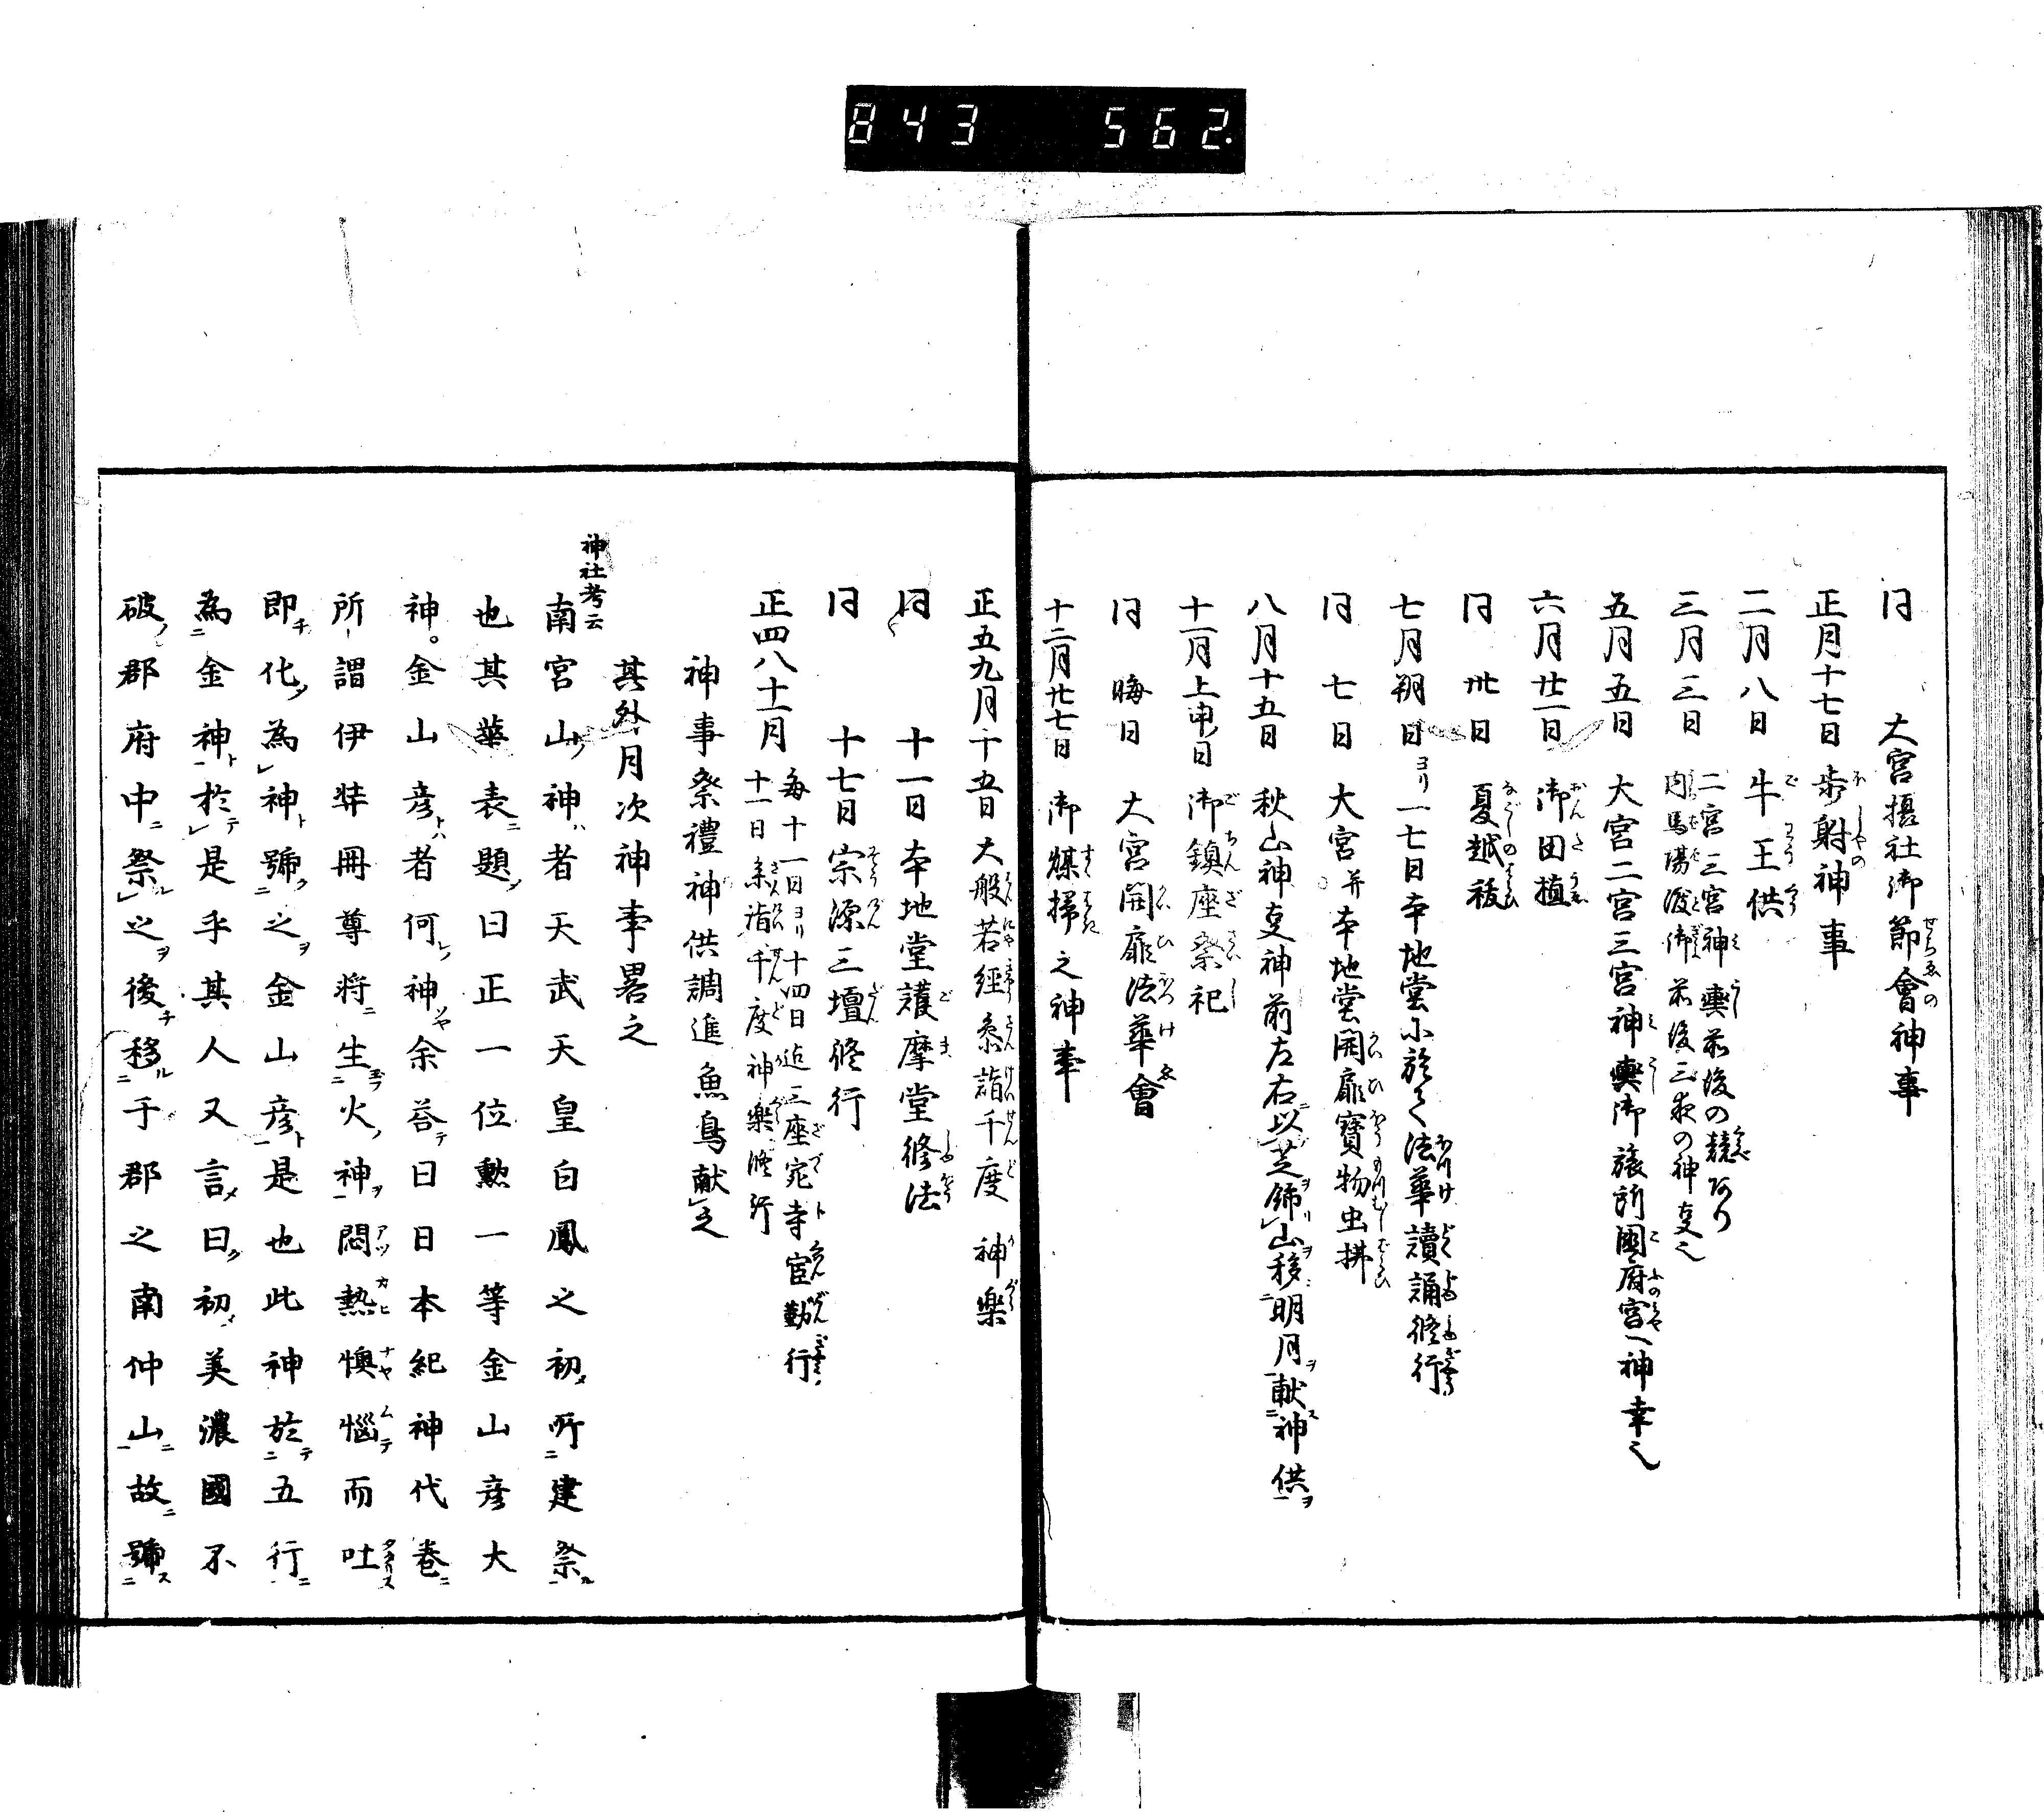 843 562.
同 大宮攝社御節會神事
正月十七日 歩射神事
二月八日 牛王供
三月三日 二宮三宮神輿前後の競あり
内馬場渡御 前後三夜の神事之
五月五日 大宮二宮三宮神輿御旅所國府宮へ神幸之
六月廿一日 御田植
同 卅日 夏越祓
七月朔日ヨリ一七日本地堂に於て法華讀誦修行
同 七日 大宮并本地堂開扉寳物虫拂
八月十五日 秋山神事神前左右ニ以芝餝山移明月ヲ献神供ヲ
十一月上申ノ日 御鎮座祭祀
同 晦日 大宮開扉法華會
十二月廿七日 御煤掃之神事
正五九月十五日 大般若經 参詣千度 神樂
同 十一日 本地堂護摩堂修法
同 十七日 宗源三壇修行
正四八十一月 毎十一日ヨリ十四日迄三座 寺官勤行
十一日参詣千度神樂修行
神事祭禮神供調進魚鳥献之
其外月次神事畧之
神社考云
南宮山神者天武天皇白鳳之初所建祭
也其華表題曰正一位勲一等金山彦大
神。金山彦者何神余荅曰日本紀神代巻
所謂伊弉冊尊將生火神悶熱懊惱而吐
即化為神號之金山彦是也此神於五行
為金神於是乎其人又言曰初美濃國不
破郡府中祭之後移于郡之南仲山故號